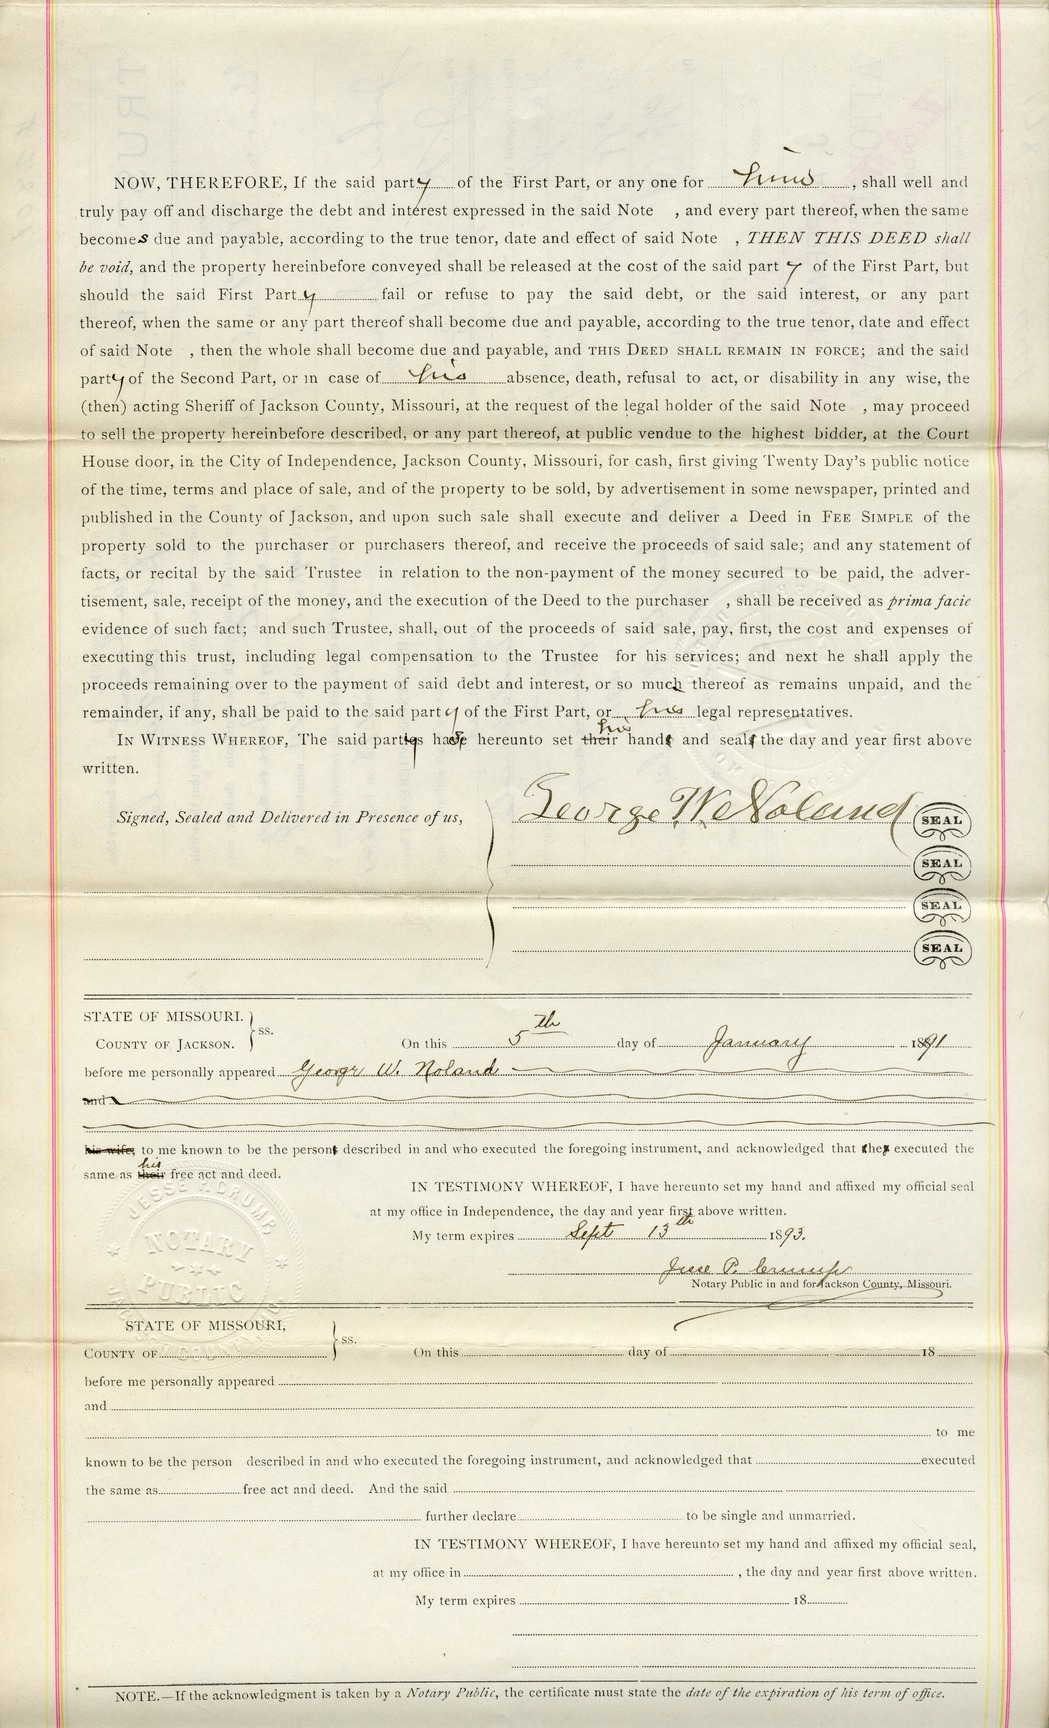 NOW, THEREFORE, If the said party of the First Part, or any one for him, shall well and
truly pay off and discharge the debt and interest expressed in the said Note , and every part thereof, when the same
becomes due and payable, according to the true tenor, date and effect of said Note , THEN THIS DEED shall
be void, and the property hereinbefore conveyed shall be released at the cost of the said party of the First Part, but
should the said First Party fail or refuse to pay the said debt, or the said interest, or any part
thereof, when the same or any part thereof shall become due and payable, according to the true tenor, date and effect
of said Note , then the whole shall become due and payable, and THIS DEED SHALL REMAIN IN FORCE; and the said
party of the Second Part, or in case of his absence, death, refusal to act, or disability in any wise, the
(then) acting Sheriff of Jackson County, Missouri, at the request of the legal holder of the said Note , may proceed
to sell the property hereinbefore described, or any part thereof, at public vendue to the highest bidder, at the Court
House door, in the City of Independence, Jackson County, Missouri, for cash, first giving Twenty Day's public notice
of the time, terms and place of sale, and of the property to be sold, by advertisement in some newspaper, printed and
published in the County of Jackson, and upon such sale shall execute and deliver a Deed in FEE SIMPLE of the
property sold to the purchaser or purchasers thereof, and receive the proceeds of said sale; and any statement of
facts, or recital by the said Trustee in relation to the non-payment of the money secured to be paid, the adver-
tisement, sale, receipt of the money, and the execution of the Deed to the purchaser , shall be received as prima facie
evidence of such fact; and such Trustee, shall, out of the proceeds of said sale, pay, first, the cost and expenses of
executing this trust, including legal compensation to the Trustee for his services; and next he shall apply the
proceeds remaining over to the payment of said debt and interest, or so much thereof as remains unpaid, and the
remainder, if any, shall be paid to the said party of the First Part, or his legal representatives.
IN WITNESS WHEREOF, The said party has hereunto set their his hand and seal the day and year first above
written.
Signed, Sealed and Delivered in Presence of us,
George W. Noland SEAL
SEAL
SEAL
SEAL
STATE OF MISSOURI.
COUNTY OF JACKSON. ss. On this 5th day of January 1891
before me personally appeared George W. Noland
and
his wife, to me known to be the person described in and who executed the foregoing instrument, and acknowledged that he executed the
same as their his free act and deed.
IN TESTIMONY WHEREOF, I have hereunto set my hand and affixed my official seal
at my office in Independence, the day and year first above written.
My term expires Sept 13th 1893.
Jesse P. Crump
Notary Public in and for Jackson County, Missouri.
JESSE P. CRUMP,
NOTARY
PUBLIC
JACKSON COUNTY, MO.
STATE OF MISSOURI,
COUNTY OF ss. On this day of 18
before me personally appeared
and
to me
known to be the person described in and who executed the foregoing instrument, and acknowledged that executed
the same as free act and deed. And the said
further declare to be single and unmarried.
IN TESTIMONY WHEREOF, I have hereunto set my hand and affixed my official seal,
at my office in , the day and year first above written.
My term expires 18
NOTE.—If the acknowledgment is taken by a Notary Public, the certificate must state the date of the expiration of his term of office.